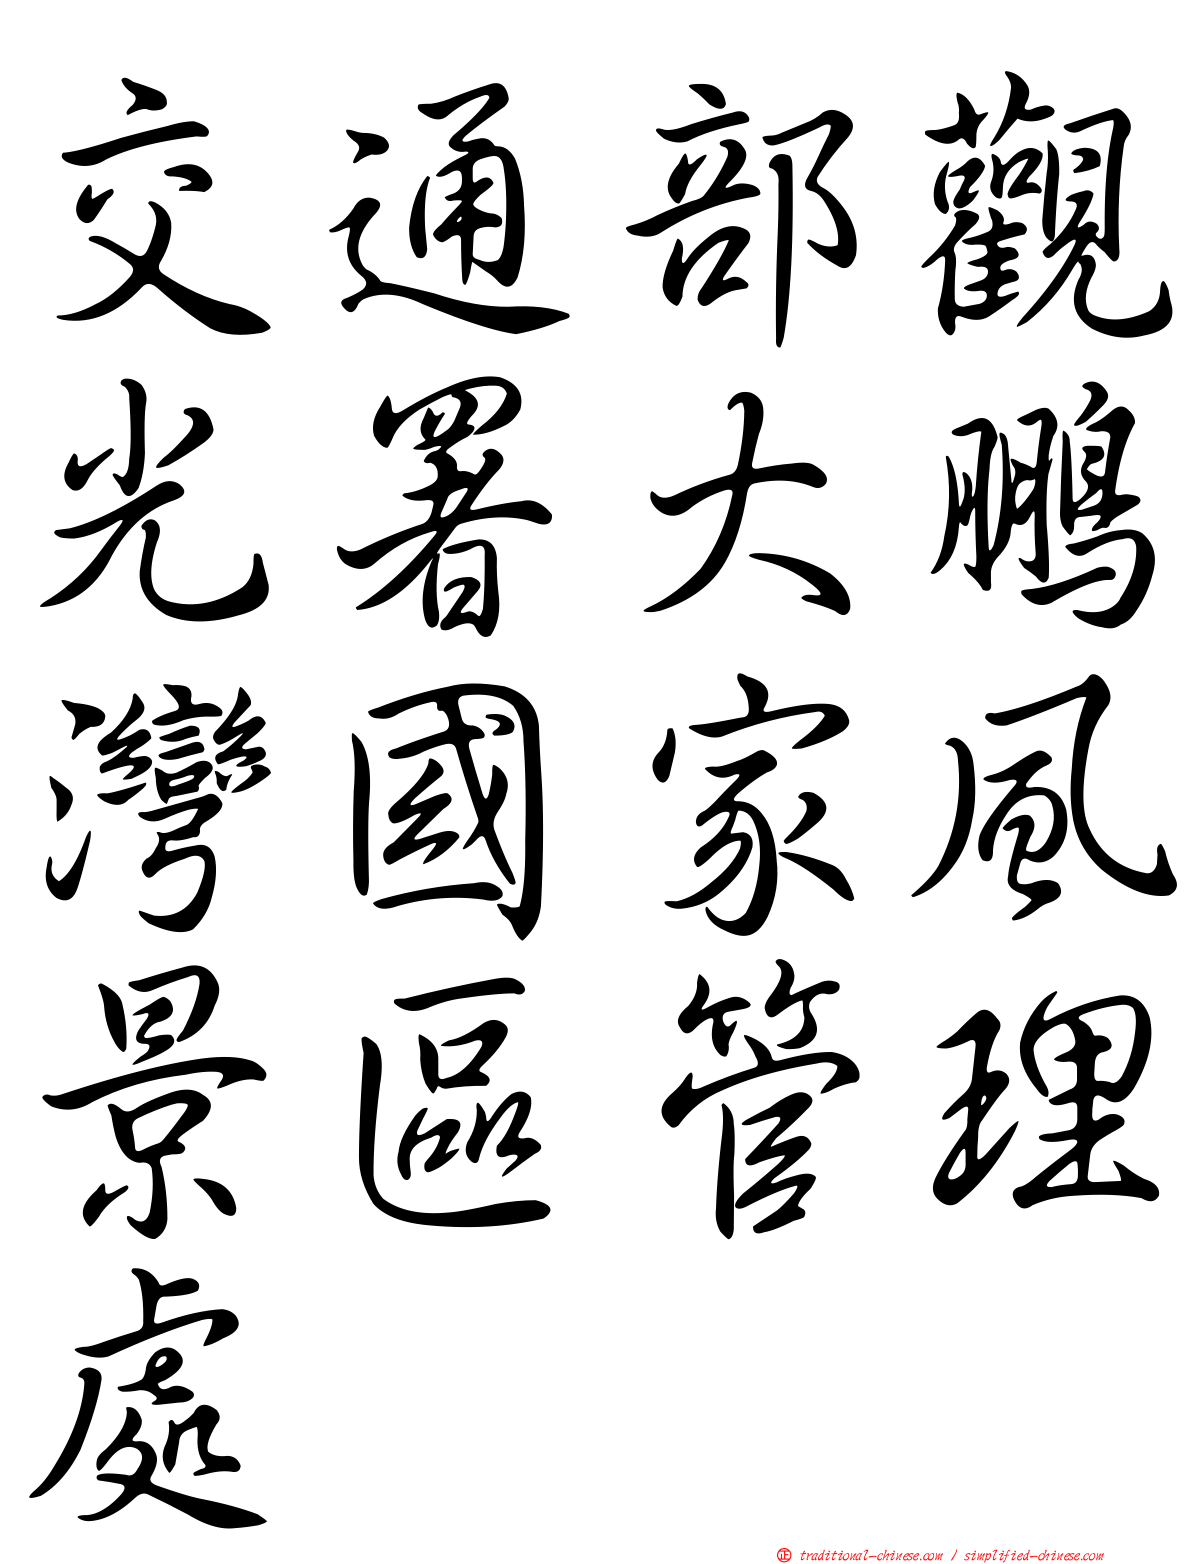 交通部觀
光署大鵬
灣國家風
景區管理
處
正 traditional-chinese.com / simplified-chinese.com